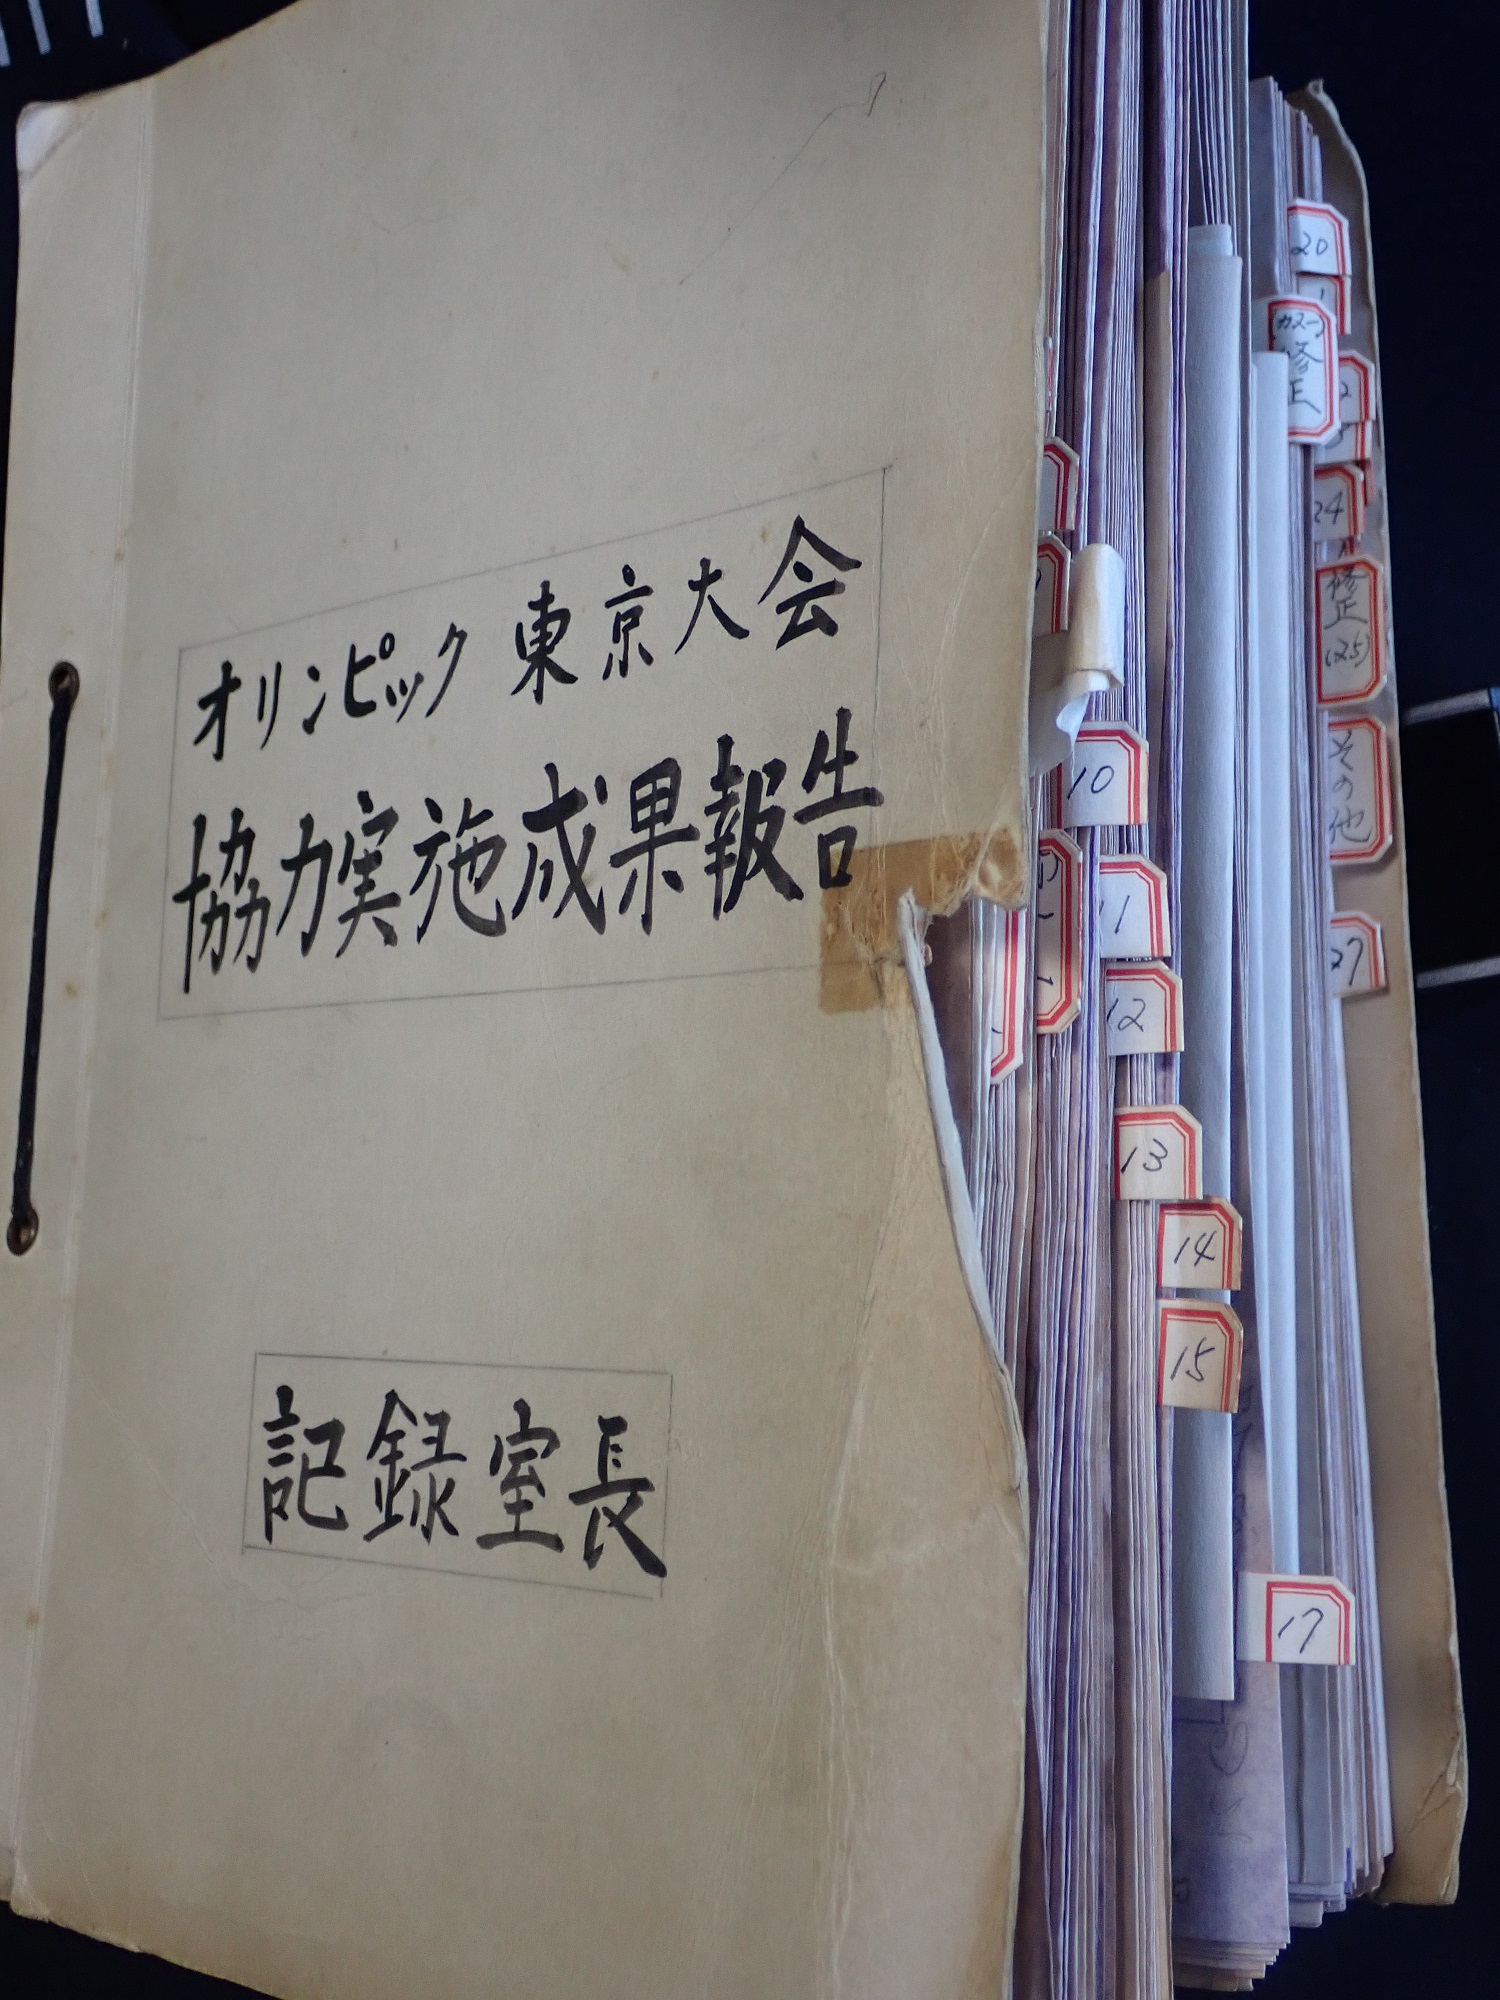 オリンピック 東京大会
協力実施成果報告
記録室長
10
11
12
13
14
15
17
20
修正
24
修正
(25)
その他
27